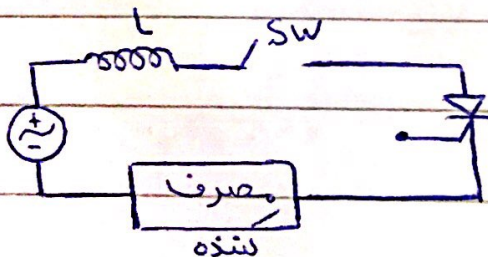 L SW
+
-
مصرف
کننده